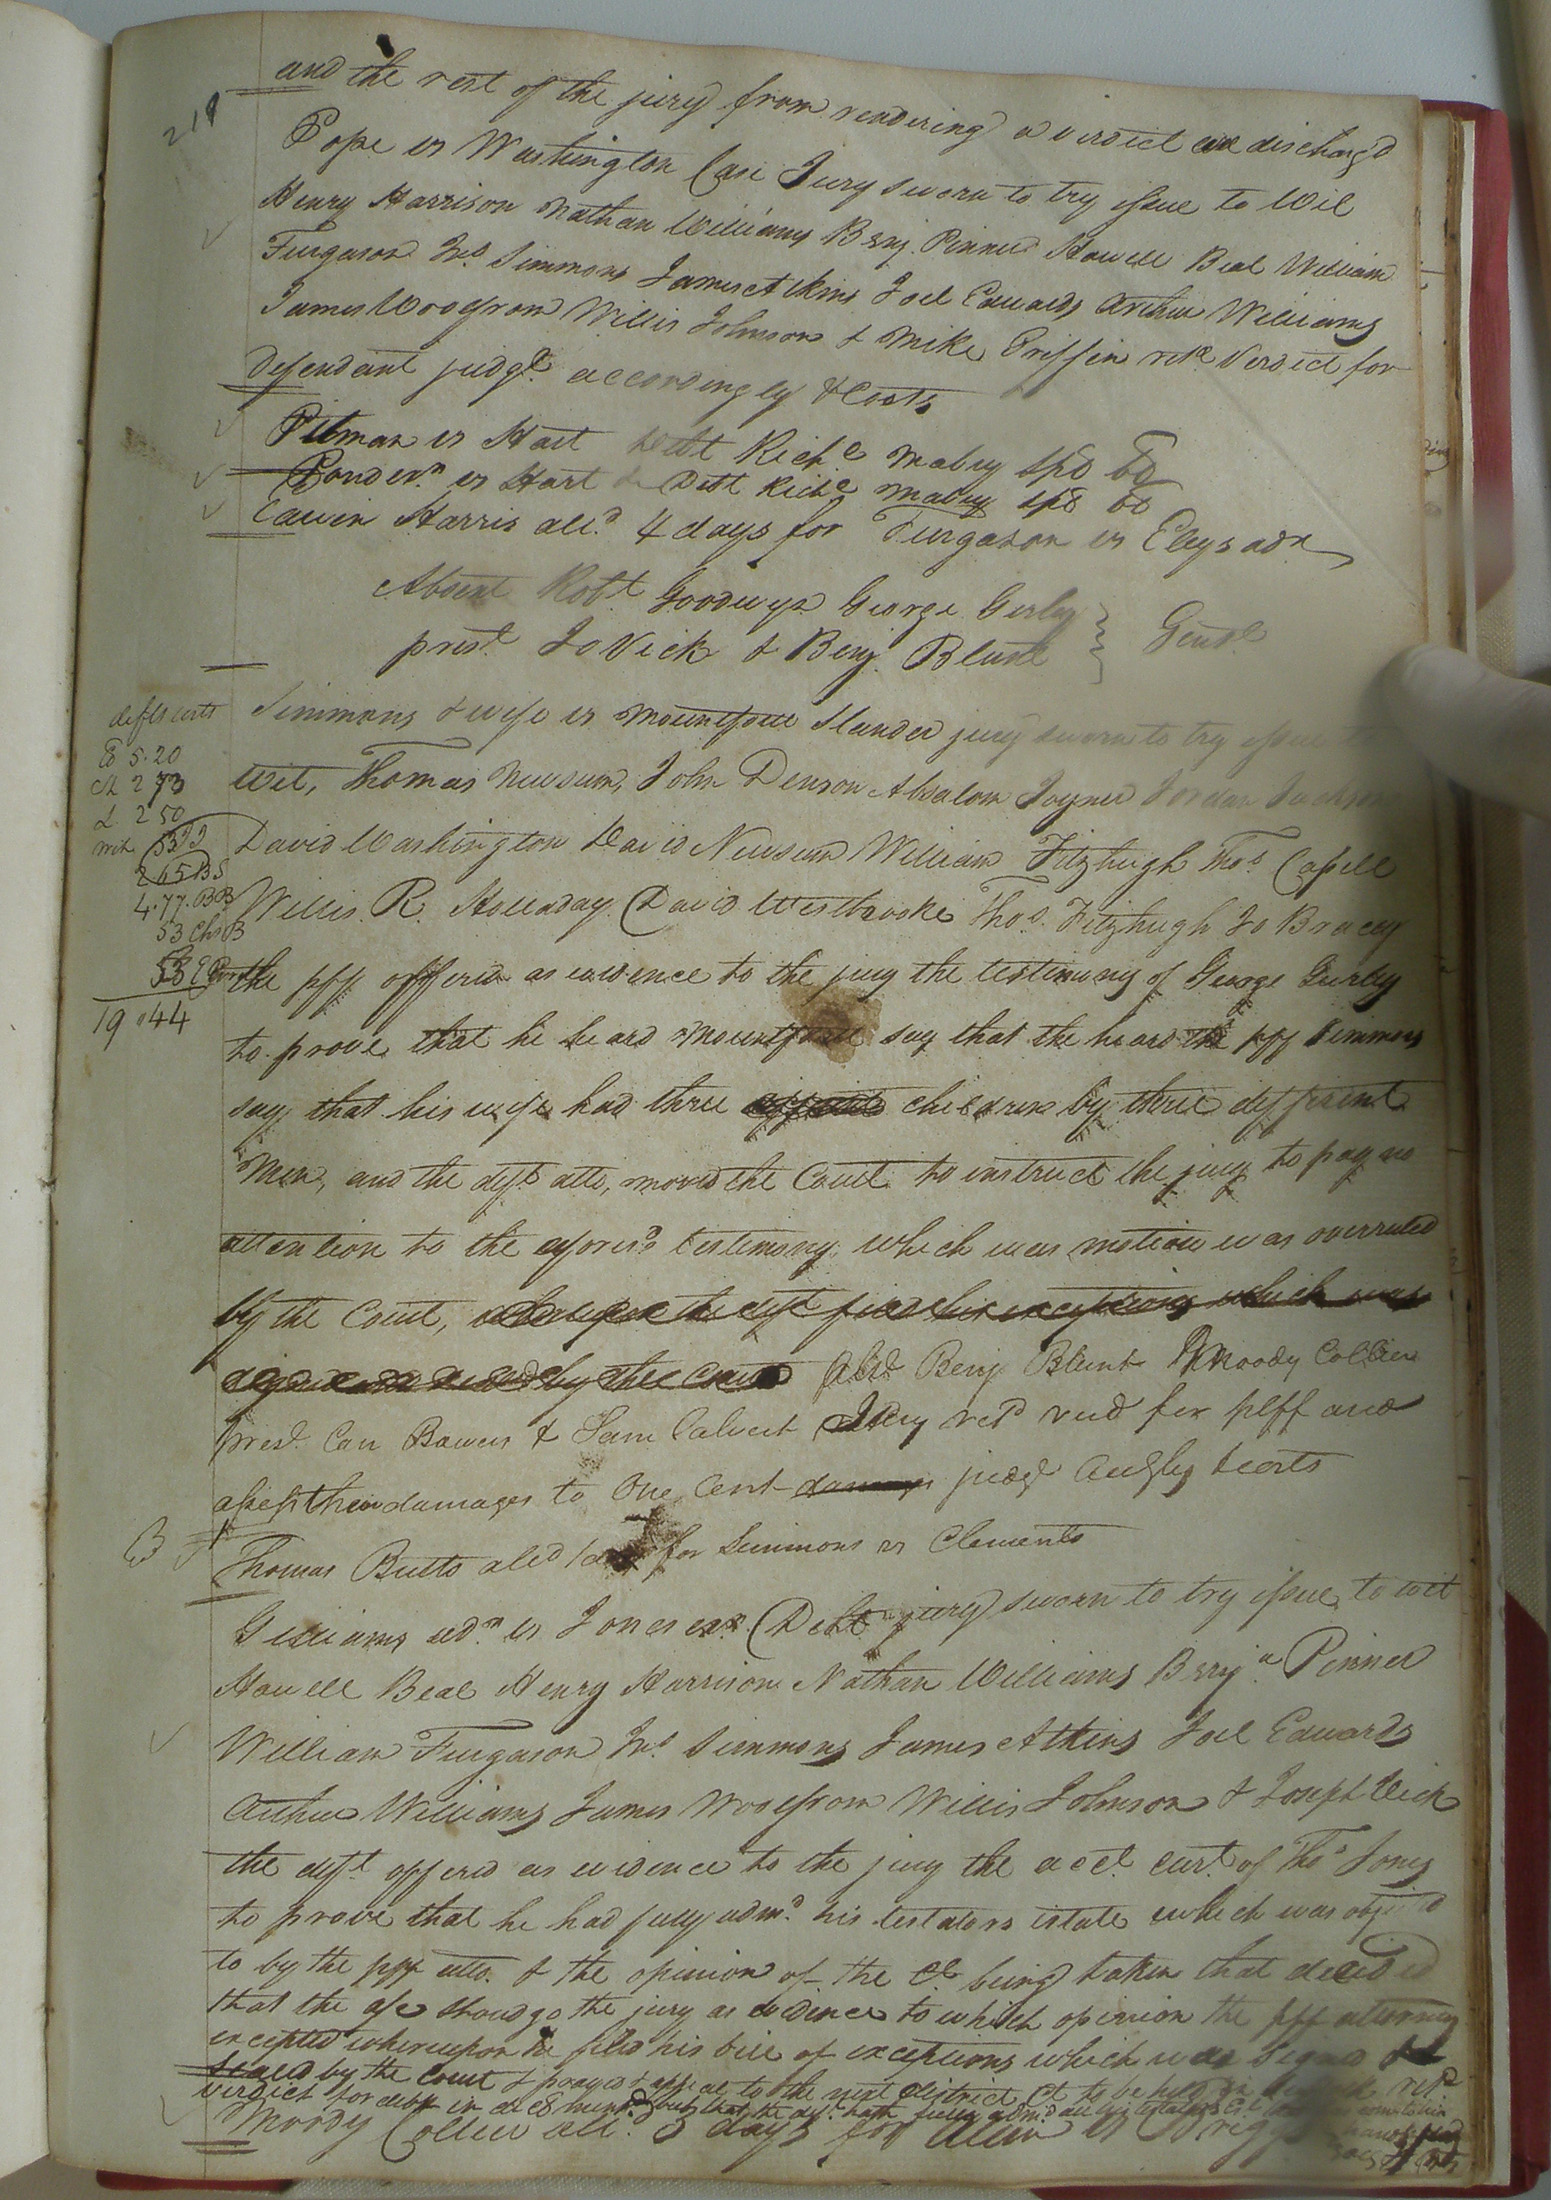 218
and the rest of the jury from rendering a verdict are dischargd
Pope vs Washington Case Jury sworn to try issue to Wit
Henry Harrison Nathan Williams Benj. Pinner Howell Beal William
Furgason Jno. Simmons James Atkins Joel Edwards Arthur Williams
James Woolfrom Willis Johnson & Mike Griffin retd. Verdict for
Defendant judgt. accordingly & Costs
Pitman vs Hart Debt Richd. Mabry spd bd
vs Hart Debt Richd Mabry spd bd
Edwin Harris atd. 4 days for Furgason vs Eleys adr
Absent Robt Goodwyn George Gurley
prest. Jo Vick & Benj. Blunt } Gent.
Simmons & wife vs Mountfort Slander jury sworn to try issue to
wit, Thomas Newsum, John Denson Absalom Joyner Jordan Jackson
David Washington David Newsum William Fitzhugh Thos. Capell
Willis R. Holladay David Westbrooke Thos. Fitzhugh Jo Bracey
the pff offered as evidence to the jury the testimony of George Gurley
to prove that he heard Mountfort say that she heard the pff Simmons
say that his wife had three children by three different
men, and the deft atto, moved the Court to instruct the jury to pay no
attention to the afores.d testimony which was motion was overruled
by the Court, whereupon the deft filed his exceptions which was
signed and sealed by the Court Abst. Benj Blunt Moody Collier
prest. Carr Bowers & Sam Calvert Jury retd verd for plff and
assess their damages to One Cent damages judgt accgly & costs
defts costs
5.20
2 73
2 50
2 65 BS
4.77. BB
53 Chs B
53
19.44
B
Thomas Butts atd 1 day for Simmons vs Clements
Gilliams adm. vs Jones exr. Debt jury sworn to try issue, to wit
Howell Beal Henry Harrison Nathan Williams Benja. Pinner
William Furgason Jno. Simmons James Atkins Joel Edwards
Arthur Williams James Woolfrom Willis Johnson & Joseph Vick
the deft. offered as evidence to the jury the acct. curt. of Thos Jones
to prove that he had fully admd. his testators estate which was objected
to by the pff atto. & the opinion of the Ct being taken that decided
that the a/c shoud go the jury as evidence to which opinion the pff attorney
excepted whereupon he filed his bill of exceptions which was signed &
sealed by the Court & prayed appeal to the next district Ct to be held retd
verdict for debt in decl. but that the deft. hath fully admd. all his testators
Moody Collier att. 3 days for vs